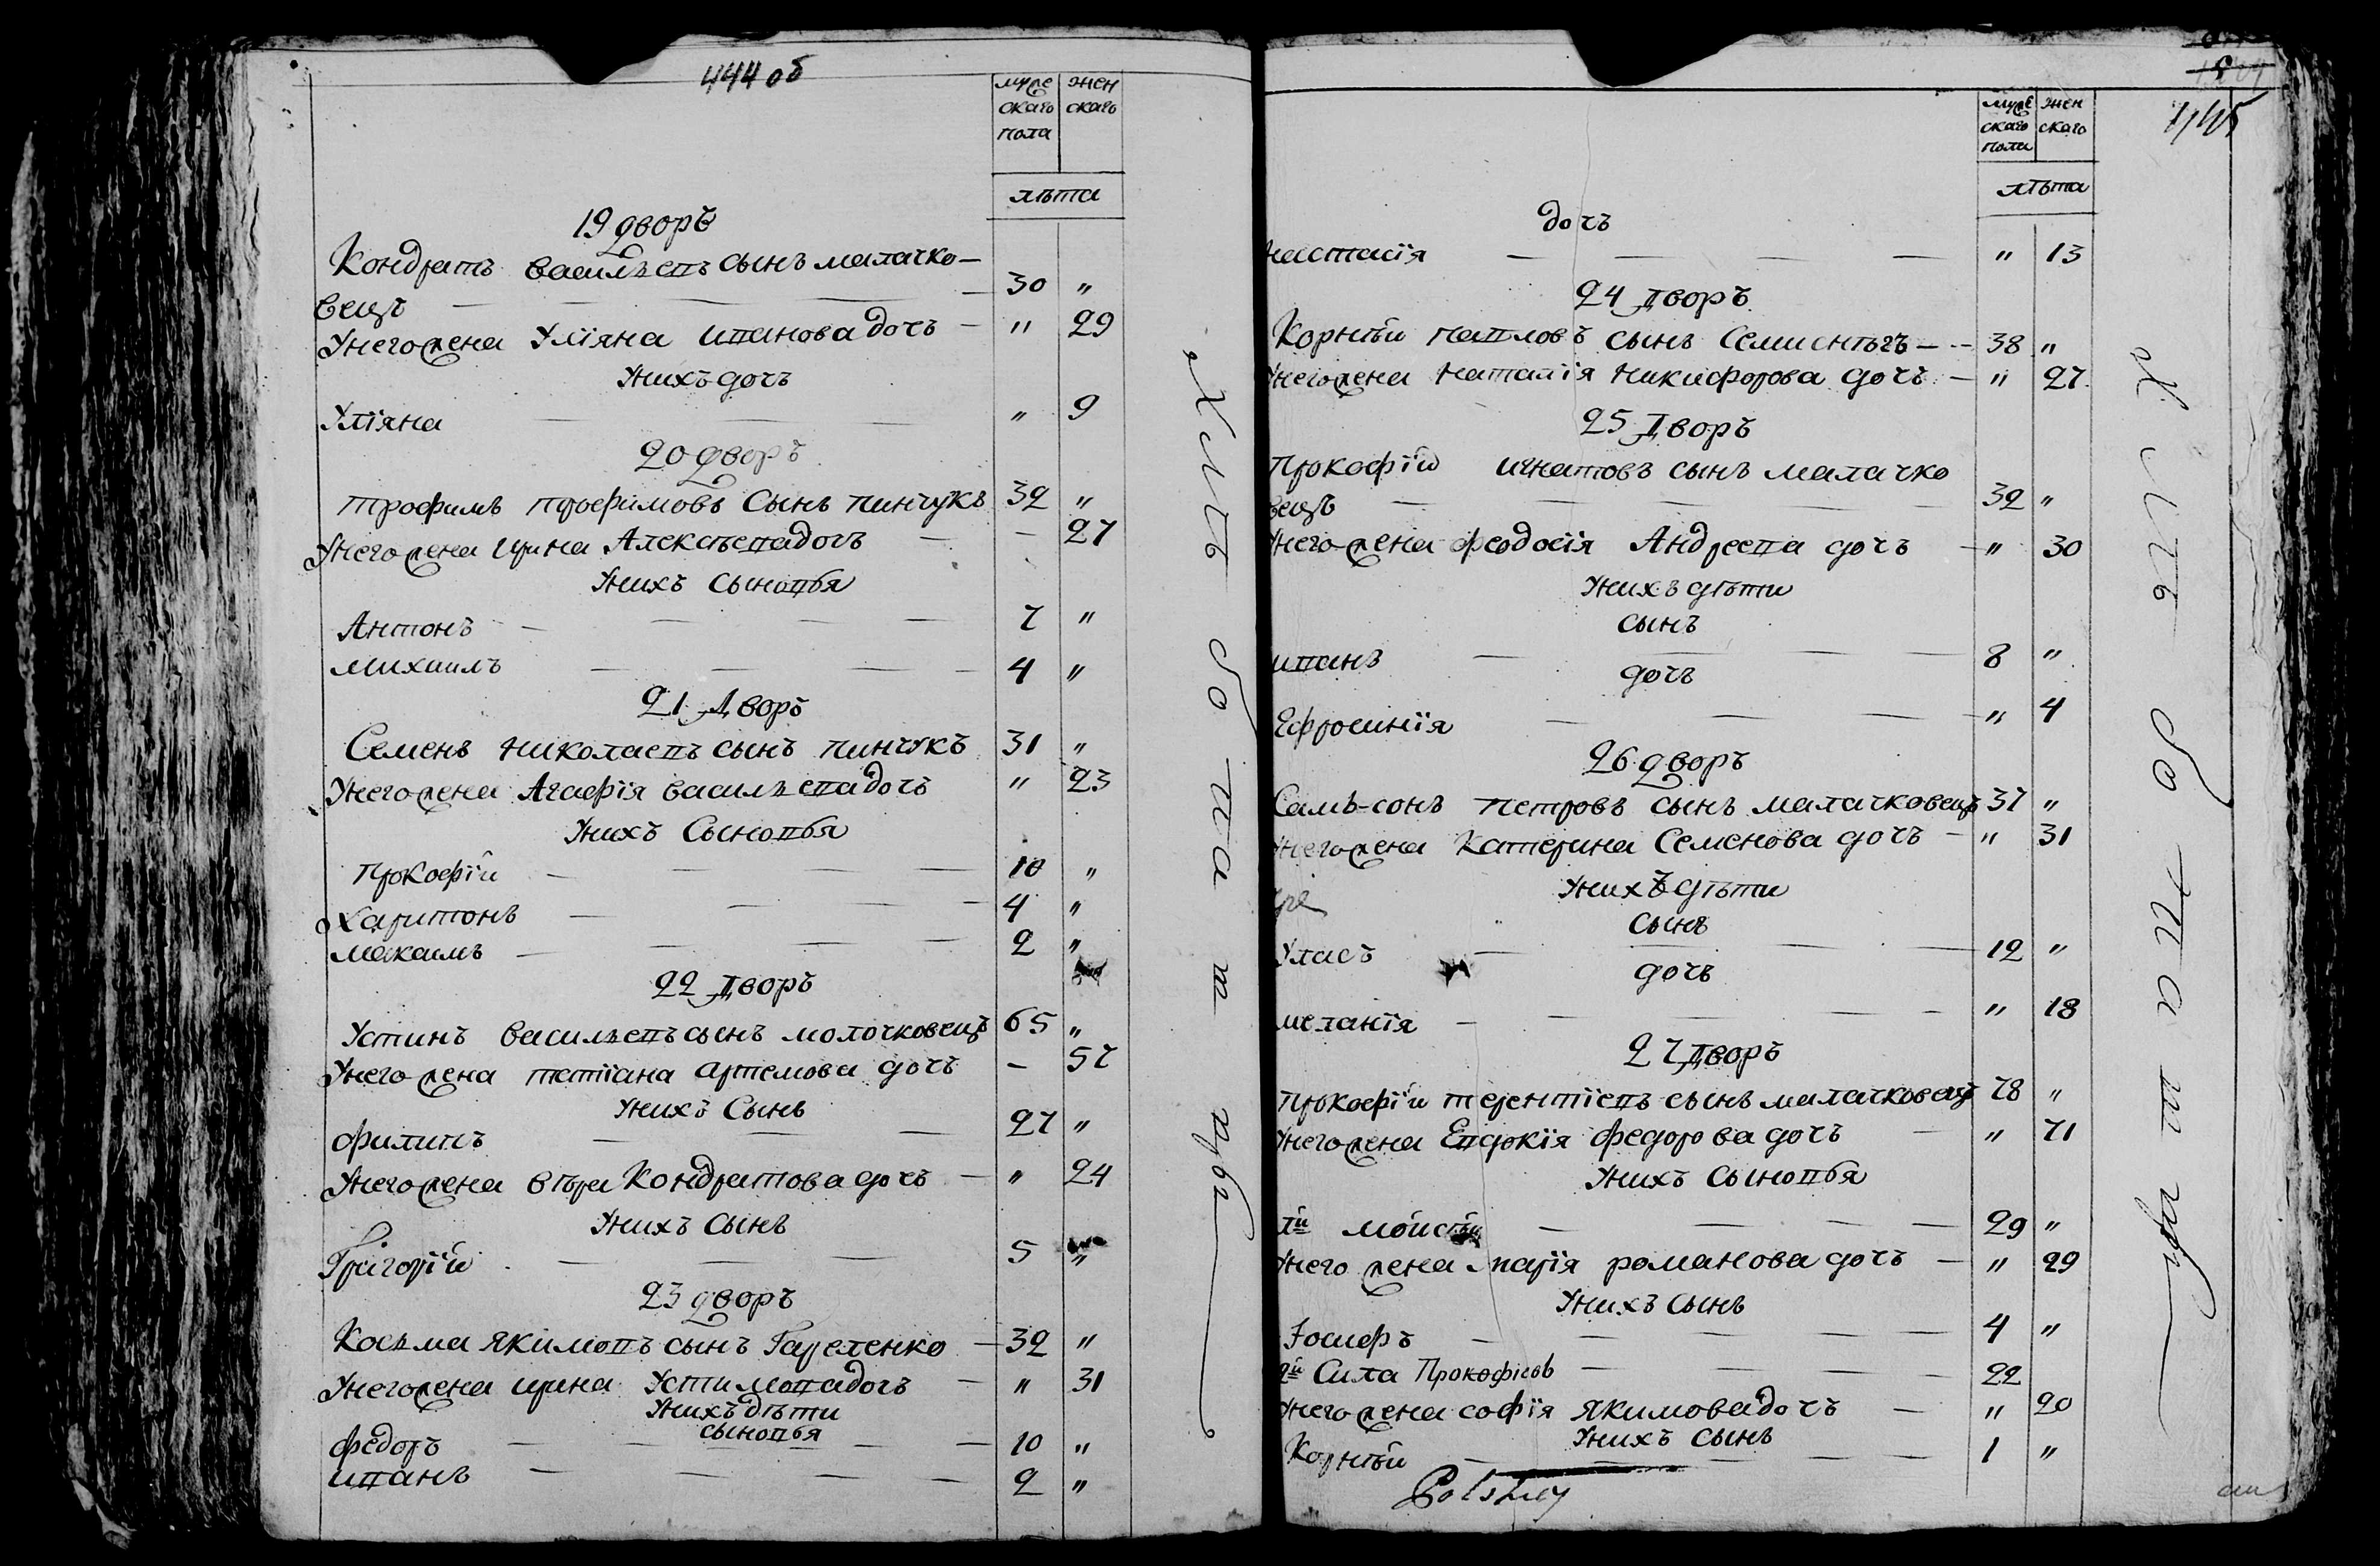 444 об
муже женскаго скаго пола
лѣта
19 дворъ
Кондратъ васильевъ сынъ малачко-
вецъ 30 "
Унего жена Уліяна иванова дочь " 29
Унихъ дочь
Уліяна " 9
20 дворъ
трофимъ трофимовъ сынъ пинчукъ 32 "
Унего жена ирина Алексѣева дочь - 27
Унихъ сыновья
Антонъ 7 "
михаилъ 4 "
21 Дворъ
Семенъ николаевъ сынъ пинчукъ 31 "
Унего жена Агафія васильева дочь " 23
Унихъ Сыновья
Прокофій 10 "
Харитонъ 4 "
максимъ 2 "
22 Дворъ
Устинъ васильевъ сынъ молочковецъ 65 "
Унего жена татіана артемова дочь - 57
Унихъ Сынъ
филипъ 27 "
Унего жена вѣра Кондратова дочь " 24
Унихъ сынъ
Григорій 5 "
23 дворъ
Козма якимовъ сынъ Гареленко 32 "
Унего жена ирина Устимова дочь " 31
Унихъ дѣти
сыновья
федоръ 10 "
иванъ 2 "
муже скаго пола
жен скаго
445
лѣта
дочь
настасія " 13
24 Дворъ
Корнѣй павловъ сынъ 38 "
Унего жена наталія никифорова дочь " 27
25 Дворъ
Прокофій игнатовъ сынъ малачко
вецъ 32 "
Унего жена феодосія Андреева дочь " 30
Унихъ дѣти
сынъ
иванъ 8 "
дочь
Ефросинія " 4
26 дворъ
Самъ-сонъ петровъ сынъ малачковецъ 37 "
Унего жена Катерина Семенова дочь " 31
Унихъ дѣти
сынъ
Уласъ 12 "
дочь
меланія " 18
27 Дворъ
Прокофій терентіевъ сынъ малачковецъ 78 "
Унего жена Евдокія федорова дочь " 71
Унихъ сыновья
1й мойсѣй 29 "
Унего жена марія романова дочь " 29
Унихъ сынъ
Іосифъ 4 "
2й Сила Прокофіевъ 22
Унего жена софія якимова дочь " 20
Унихъ сынъ
Корнѣй 1 "